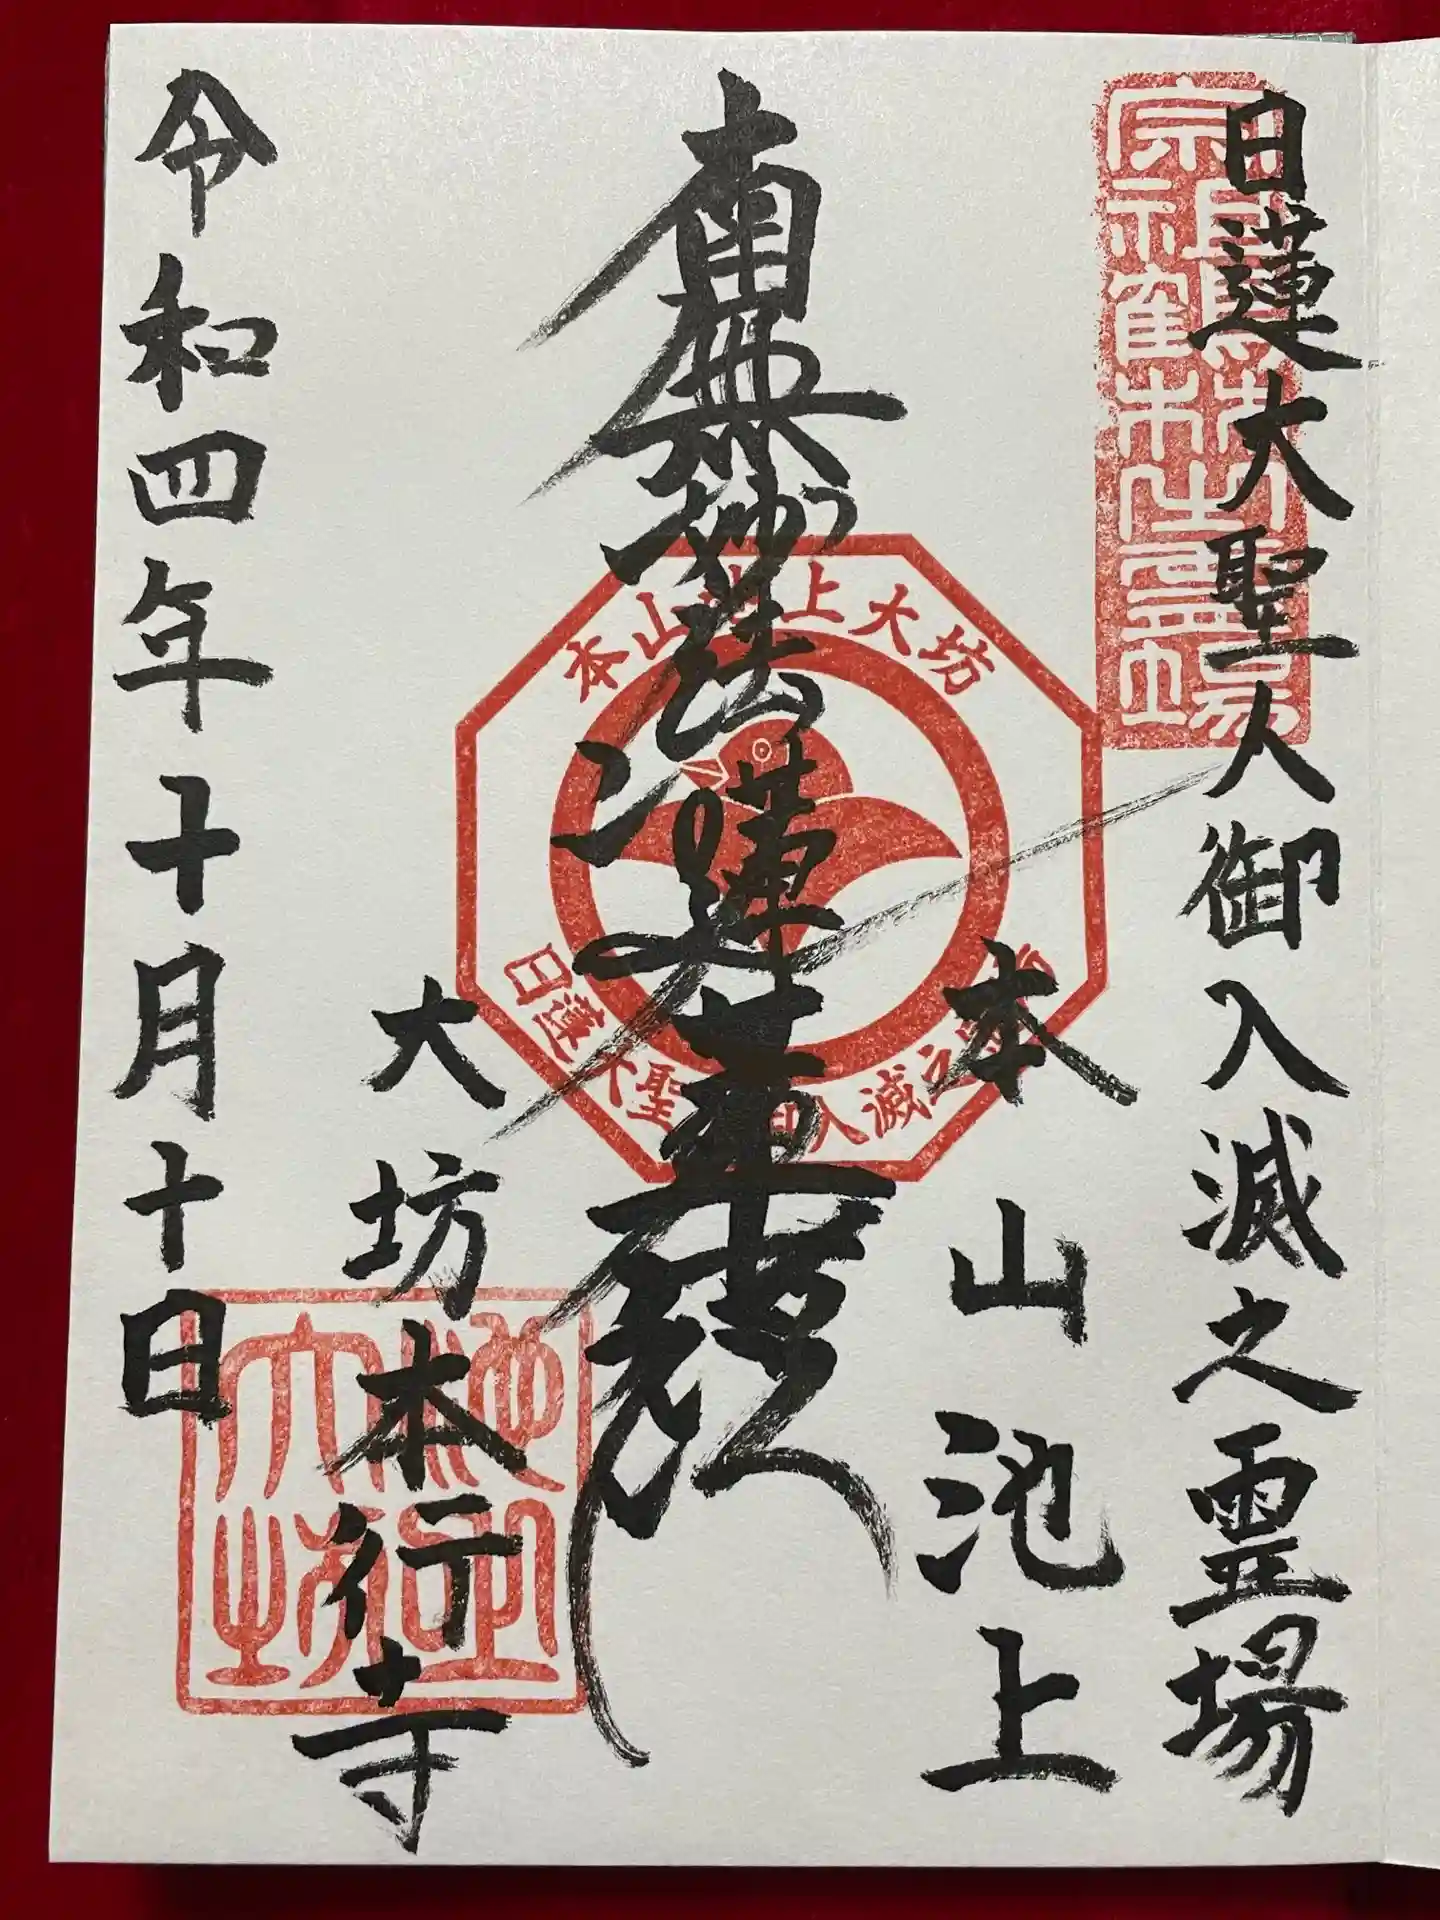 日蓮大聖人御入滅之霊場
本山池上
南無妙法蓮華経
大坊本行寺
令和四年十月十日
本山池上大坊
日蓮大聖 入滅之
池上
大坊